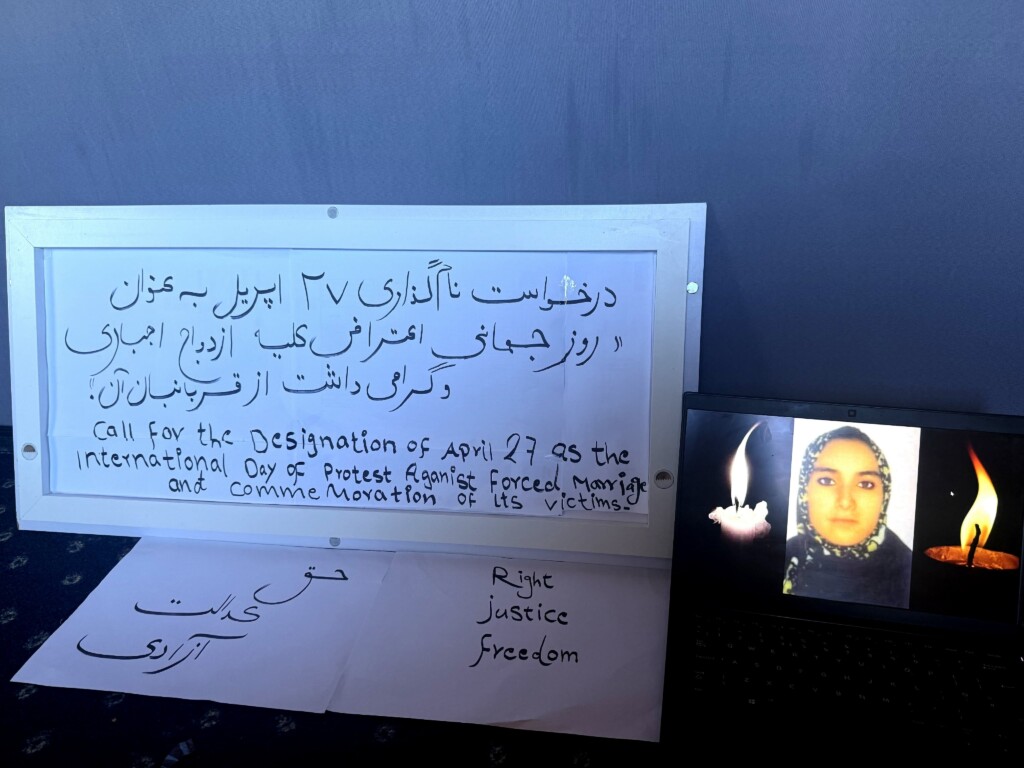 درخواست نام‌گذاری ۲۷ اپریل به عنوان
«روز جهانی اعتراض علیه ازدواج اجباری
و گرامی داشت از قربانیان آن»
Call for the Designation of April 27 as the
International Day of Protest Aganist Forced Marriage
and Comme Moration of Its victims.
حق
عدالت
آزادی
Right
justice
freedom